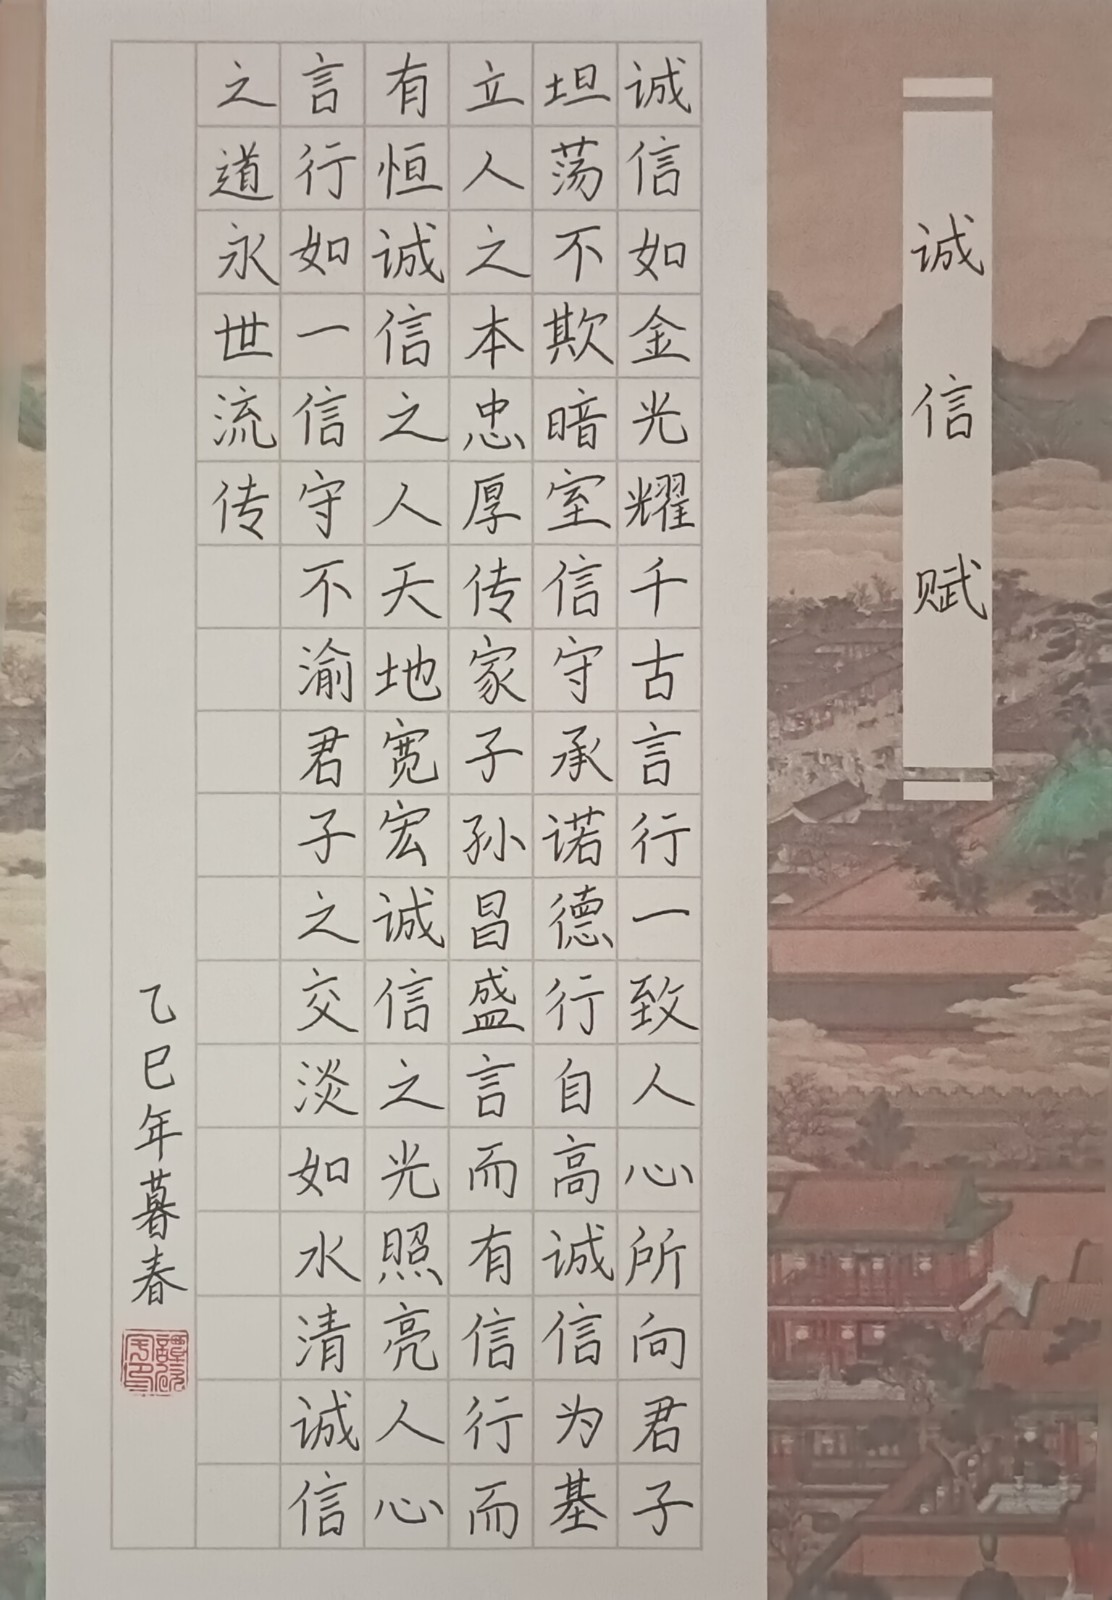 诚信赋
诚信如金光耀千古言行一致人心所向君子
坦荡不欺暗室信守承诺德行自高诚信为基
立人之本忠厚传家子孙昌盛言而有信行而
有恒诚信之人天地宽宏诚信之光照亮人心
言行如一信守不渝君子之交淡如水清诚信
之道永世流传
乙巳年暮春